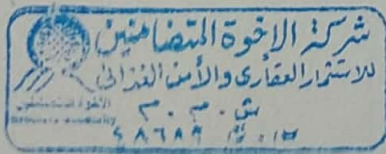 شركة الاخوة المتضامنين
للاستثمار العقارى والأمن الغذائى
ش.م.م
الأخوة المتضامنين